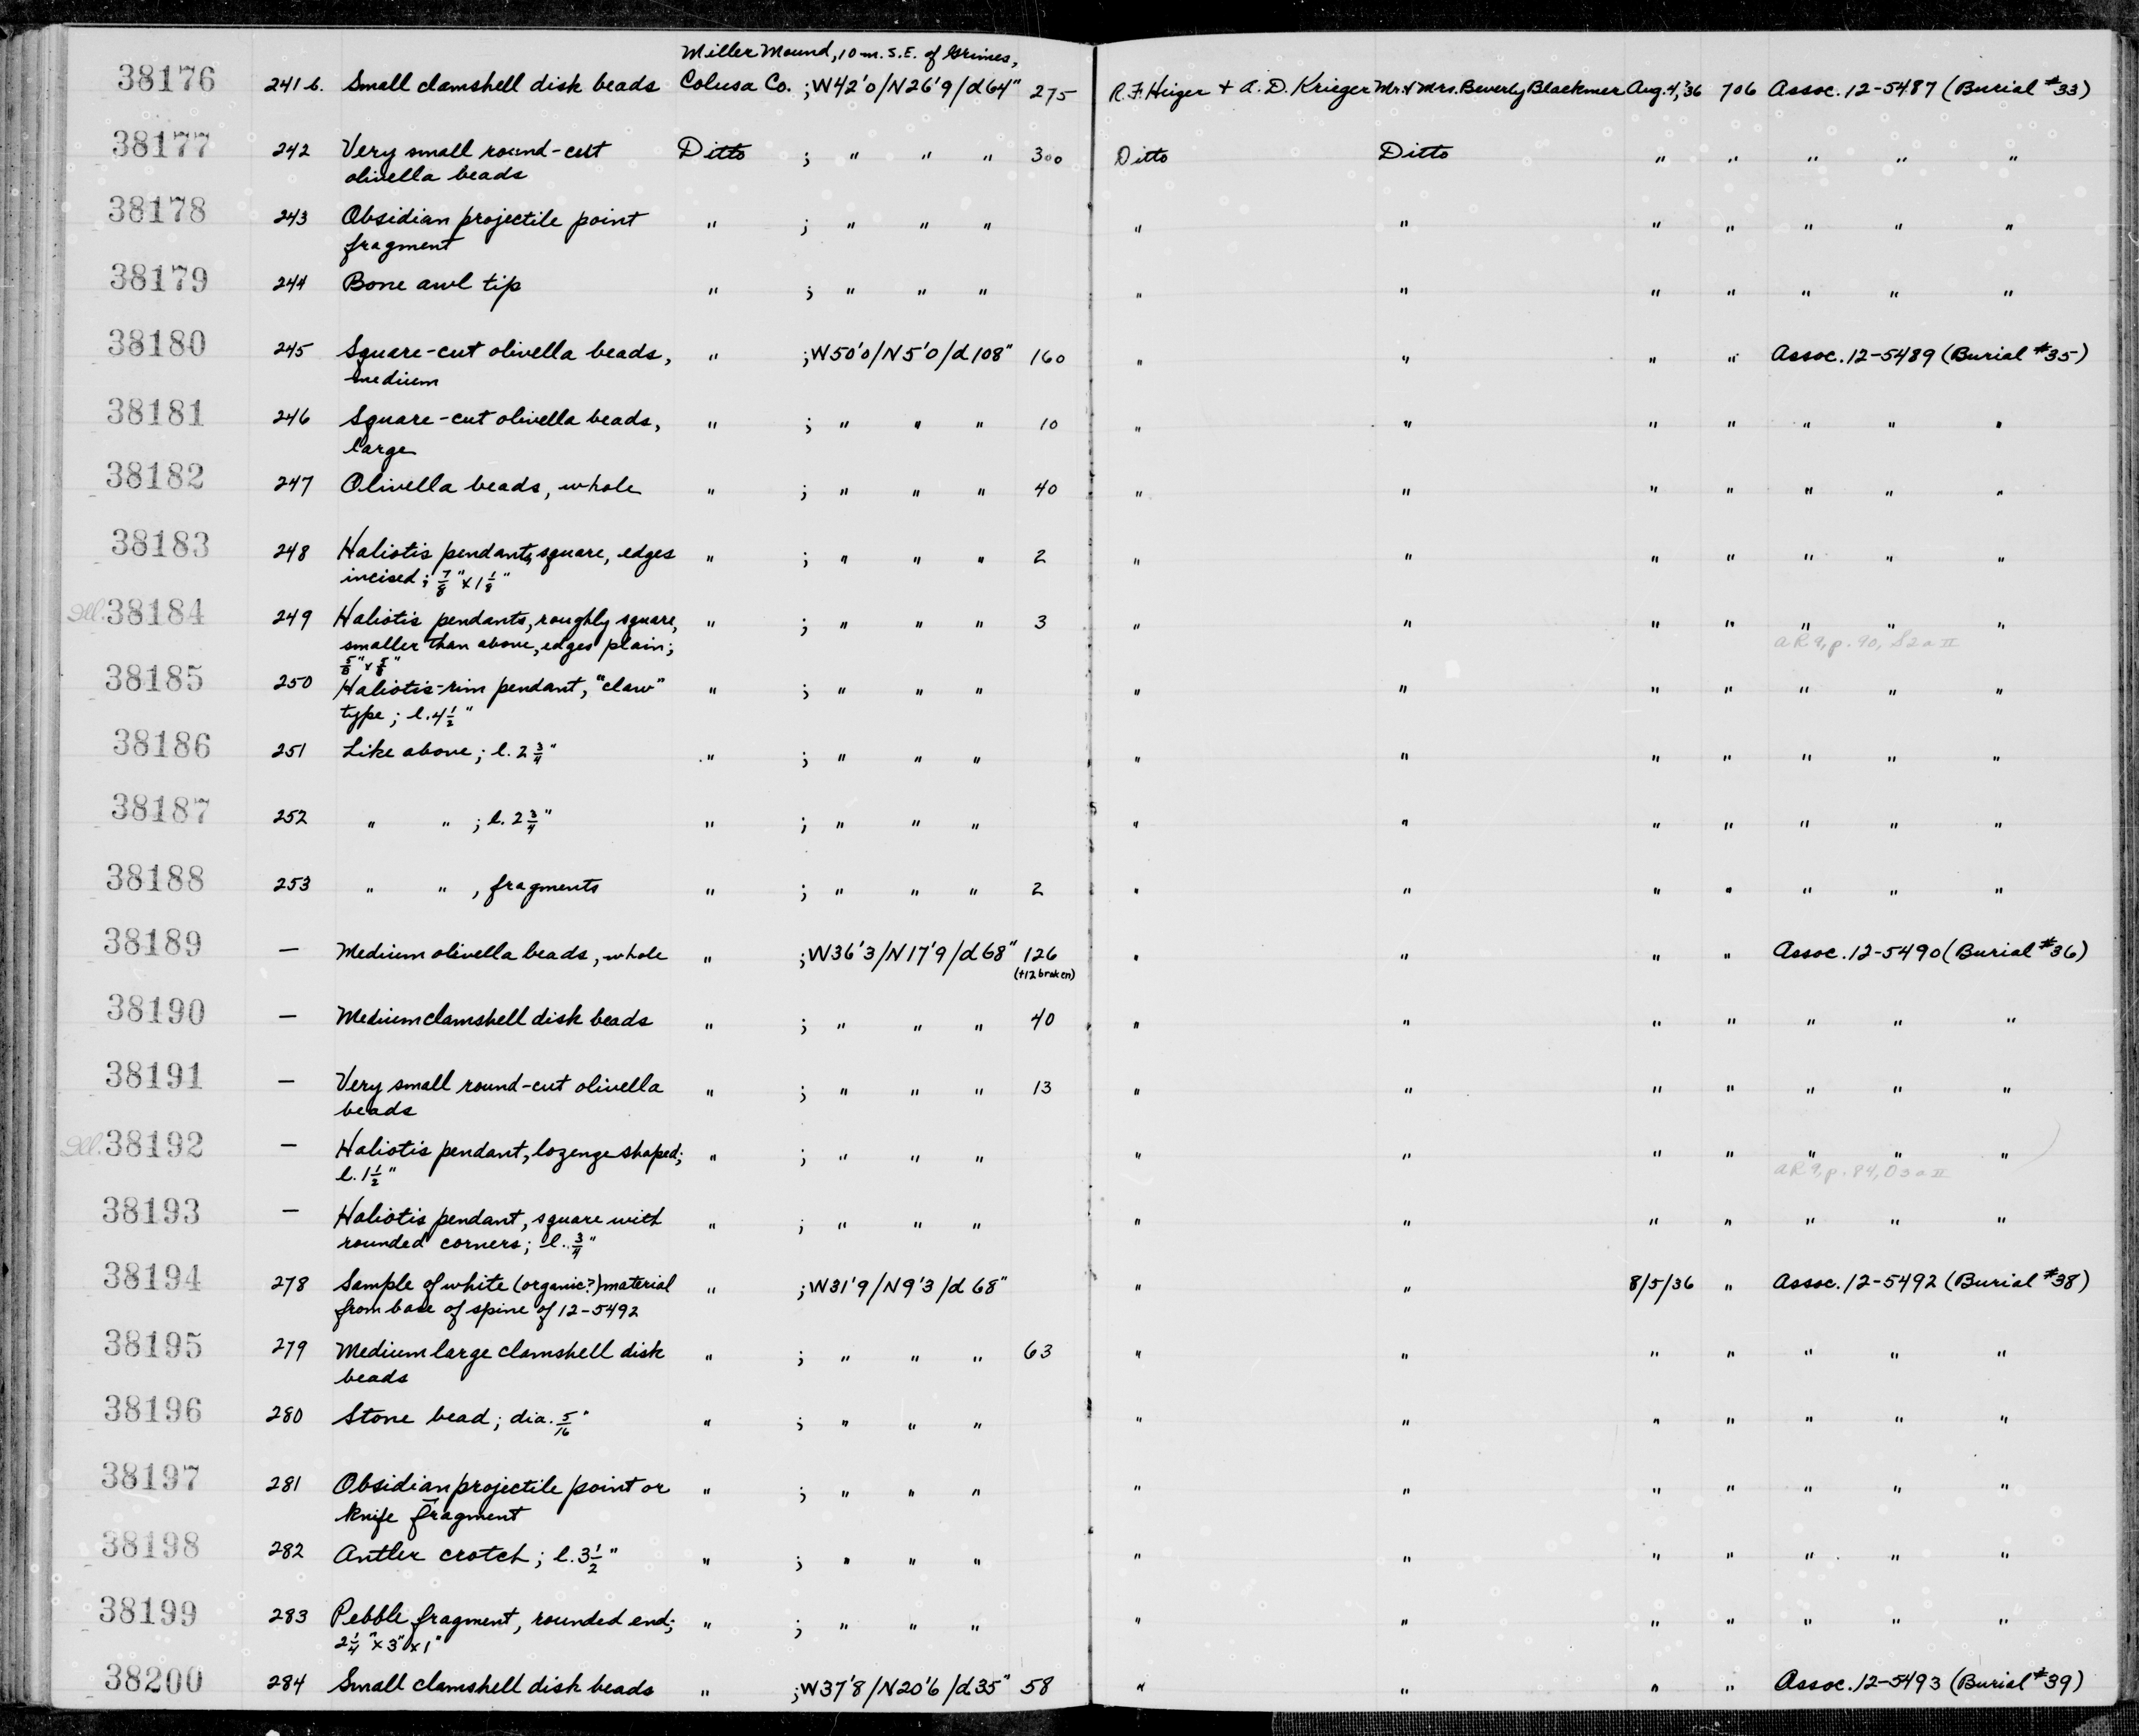 Miller Mound, 10 m. S.E. of Grimes,
38176 241 b. Small clamshell disk beads Colusa Co. ; W42'0/N26'9/d64" 275 R.F. Heizer + A.D. Krieger Mr. & Mrs. Beverly Blackmer Aug. 4, '36 706 Assoc. 12-5487 (Burial #33)
38177 242 Very small round-cut Ditto ; " " " 300 Ditto Ditto " " " " "
olivella beads
38178 243 Obsidian projectile point " ; " " " " " " " " " "
fragment
38179 244 Bone awl tip " ; " " " " " " " " " "
38180 245 Square-cut olivella beads, " ; W50'0/N5'0/d108" 160 " " " " Assoc. 12-5489 (Burial #35)
medium
38181 246 Square-cut olivella beads, " ; " " " 10 " " " " " " "
large
38182 247 Olivella beads, whole " ; " " " 40 " " " " " " "
38183 248 Haliotis pendants, square, edges " ; " " " 2 " " " " " " "
incised; 7/8" x 1 1/8"
Ill. 38184 249 Haliotis pendants, roughly square, " ; " " " 3 " " " " " " "
smaller than above, edges plain; AR 9, p. 90, S2aII
5/8" x 5/8"
38185 250 Haliotis-rim pendant, "claw" " ; " " " " " " " " " "
type; l. 4 1/2"
38186 251 Like above; l. 2 3/4" " ; " " " " " " " " " "
38187 252 " " ; l. 2 3/4" " ; " " " " " " " " " "
38188 253 " " , fragments " ; " " " 2 " " " " " " "
38189 — Medium olivella beads, whole " ; W36'3/N17'9/d68" 126 " " " " Assoc. 12-5490 (Burial #36)
(+12 broken)
38190 — Medium clamshell disk beads " ; " " " 40 " " " " " " "
38191 — Very small round-cut olivella " ; " " " 13 " " " " " " "
beads
Ill. 38192 — Haliotis pendant, lozenge shaped; " ; " " " " " " " " " "
l. 1 1/2" AR 9, p. 84, O3aII
38193 — Haliotis pendant, square with " ; " " " " " " " " " "
rounded corners; l. 3/4"
38194 278 Sample of white (organic?) material " ; W31'9/N9'3/d 68" " " 8/5/36 " Assoc. 12-5492 (Burial #38)
from base of spine of 12-5492
38195 279 Medium large clamshell disk " ; " " " 63 " " " " " " "
beads
38196 280 Stone bead; dia. 5/16" " ; " " " " " " " " " "
38197 281 Obsidian projectile point or " ; " " " " " " " " " "
knife fragment
38198 282 Antler crotch; l. 3 1/2" " ; " " " " " " " " " "
38199 283 Pebble fragment, rounded end; " ; " " " " " " " " " "
2 1/4" x 3" x 1"
38200 284 Small clamshell disk beads " ; W37'8/N20'6/d35" 58 " " " " Assoc. 12-5493 (Burial #39)